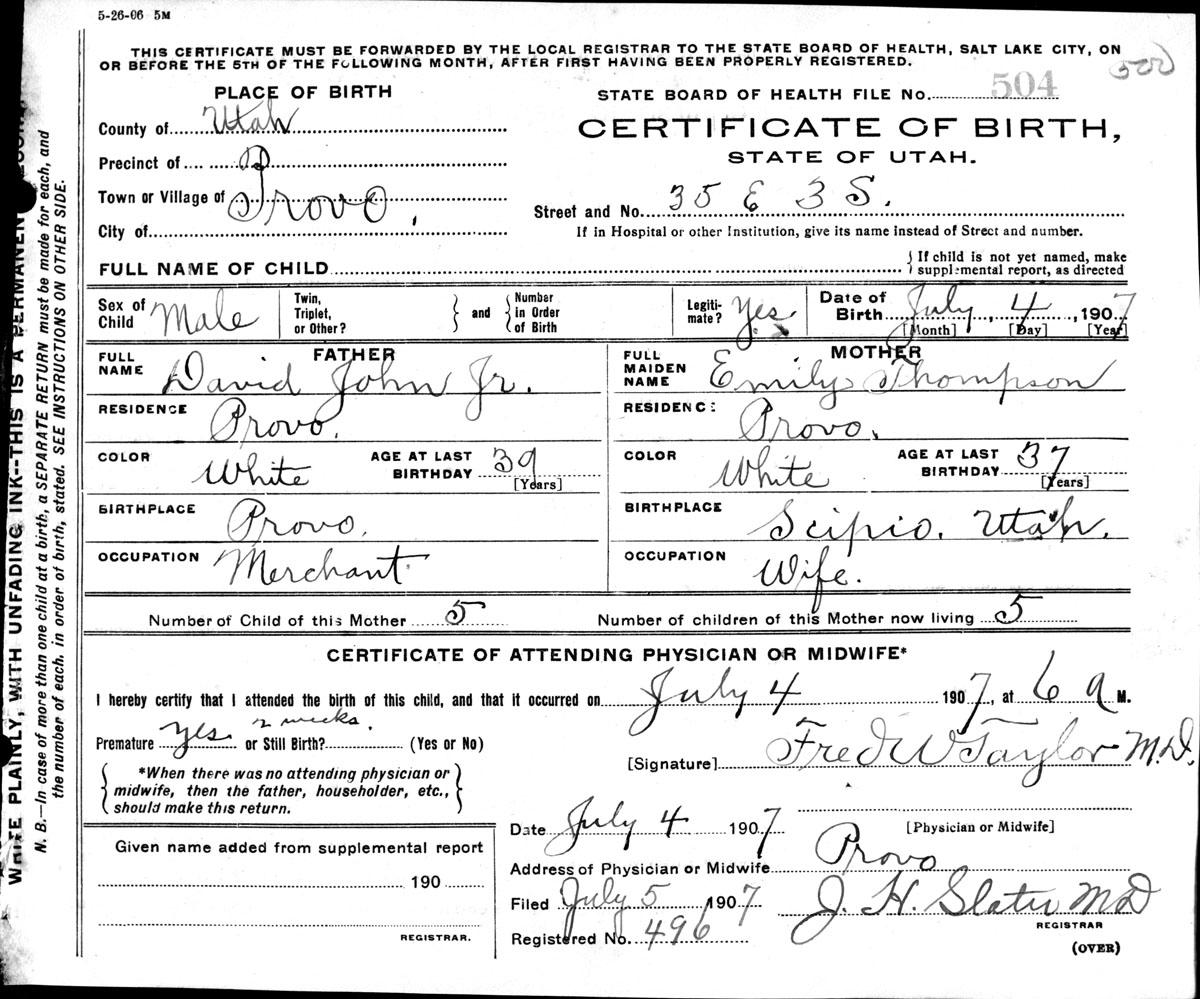 5-26-06 5M
THIS CERTIFICATE MUST BE FORWARDED BY THE LOCAL REGISTRAR TO THE STATE BOARD OF HEALTH, SALT LAKE CITY, ON
OR BEFORE THE 5TH OF THE FOLLOWING MONTH, AFTER FIRST HAVING BEEN PROPERLY REGISTERED.
500
PLACE OF BIRTH
STATE BOARD OF HEALTH FILE No. 504
County of Utah
CERTIFICATE OF BIRTH,
STATE OF UTAH.
Precinct of
Town or Village of Provo,
City of
Street and No. 35 E 3 S.
If in Hospital or other Institution, give its name instead of Street and number.
FULL NAME OF CHILD
{ If child is not yet named, make
supplemental report, as directed
Sex of Child Male
Twin, Triplet, or Other? } and { Number in Order of Birth
Legitimate? Yes.
Date of Birth July, 4, 1907
[Month] [Day] [Year]
FATHER
FULL NAME David John Jr.
RESIDENCE Provo.
COLOR White
AGE AT LAST BIRTHDAY 39
[Years]
BIRTHPLACE Provo.
OCCUPATION Merchant
MOTHER
FULL MAIDEN NAME Emily Thompson
RESIDENCE Provo.
COLOR White
AGE AT LAST BIRTHDAY 37
[Years]
BIRTHPLACE Scipio. Utah.
OCCUPATION Wife.
Number of Child of this Mother 5
Number of children of this Mother now living 5
CERTIFICATE OF ATTENDING PHYSICIAN OR MIDWIFE*
I hereby certify that I attended the birth of this child, and that it occurred on July 4 1907, at 6 a M.
Premature Yes 2 weeks. or Still Birth? (Yes or No)
{ *When there was no attending physician or
midwife, then the father, householder, etc.,
should make this return. }
[Signature] Fred W Taylor M.D.
[Physician or Midwife]
Date July 4 1907
Address of Physician or Midwife Provo
Filed July 5 1907
J. H. Slater MD
REGISTRAR
Registered No. 496
(OVER)
Given name added from supplemental report
190
REGISTRAR.
WRITE PLAINLY, WITH UNFADING INK--THIS IS A PERMANENT
N. B.—In case of more than one child at a birth, a SEPARATE RETURN must be made for each, and
the number of each, in order of birth, stated. SEE INSTRUCTIONS ON OTHER SIDE.